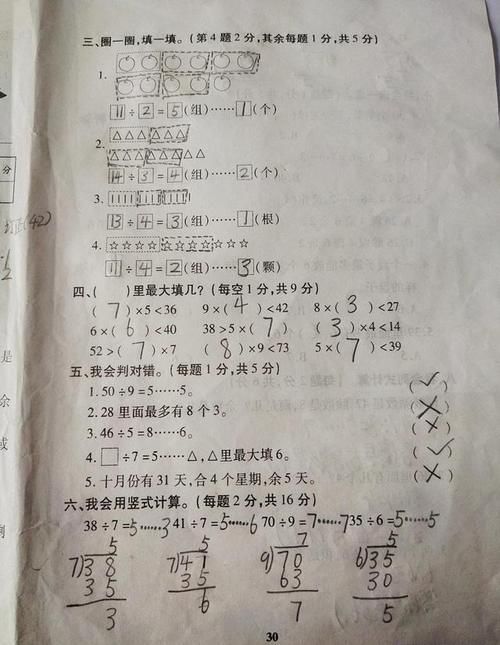 三、圈一圈,填一填。(第4题2分,其余每题1分,共5分)
1.
11÷2=5(组)……1(个)
2. △△△△△△
△△△△△△△△
14÷3=4(组)……2(个)
3.
13÷4=3(组)……1(根)
4. ☆☆☆☆☆☆☆☆☆☆☆
11÷4=2(组)……3(颗)
四、( )里最大填几?(每空1分,共9分)
(7)×5<36 9×(4)<42 8×(3)<27
6×(6)<40 38>5×(7) (3)×4<14
52>(7)×7 (8)×9<73 5×(7)<39
五、我会判对错。(每题1分,共5分)
1. 50÷9=5……5。 (✓)
2. 28里面最多有8个3。 (×)
3. 46÷5=8……6。 (×)
4. □÷7=5……△,△里最大填6。 (✓)
5. 十月份有31天,合4个星期,余5天。 (×)
六、我会用竖式计算。(每题2分,共16分)
38÷7=5……3 41÷7=5……6 70÷9=7……7 35÷6=5……5
5 5 7 5
7)38 7)41 9)70 6)35
35 35 63 30
3 6 7 5
30
分
是
余
或